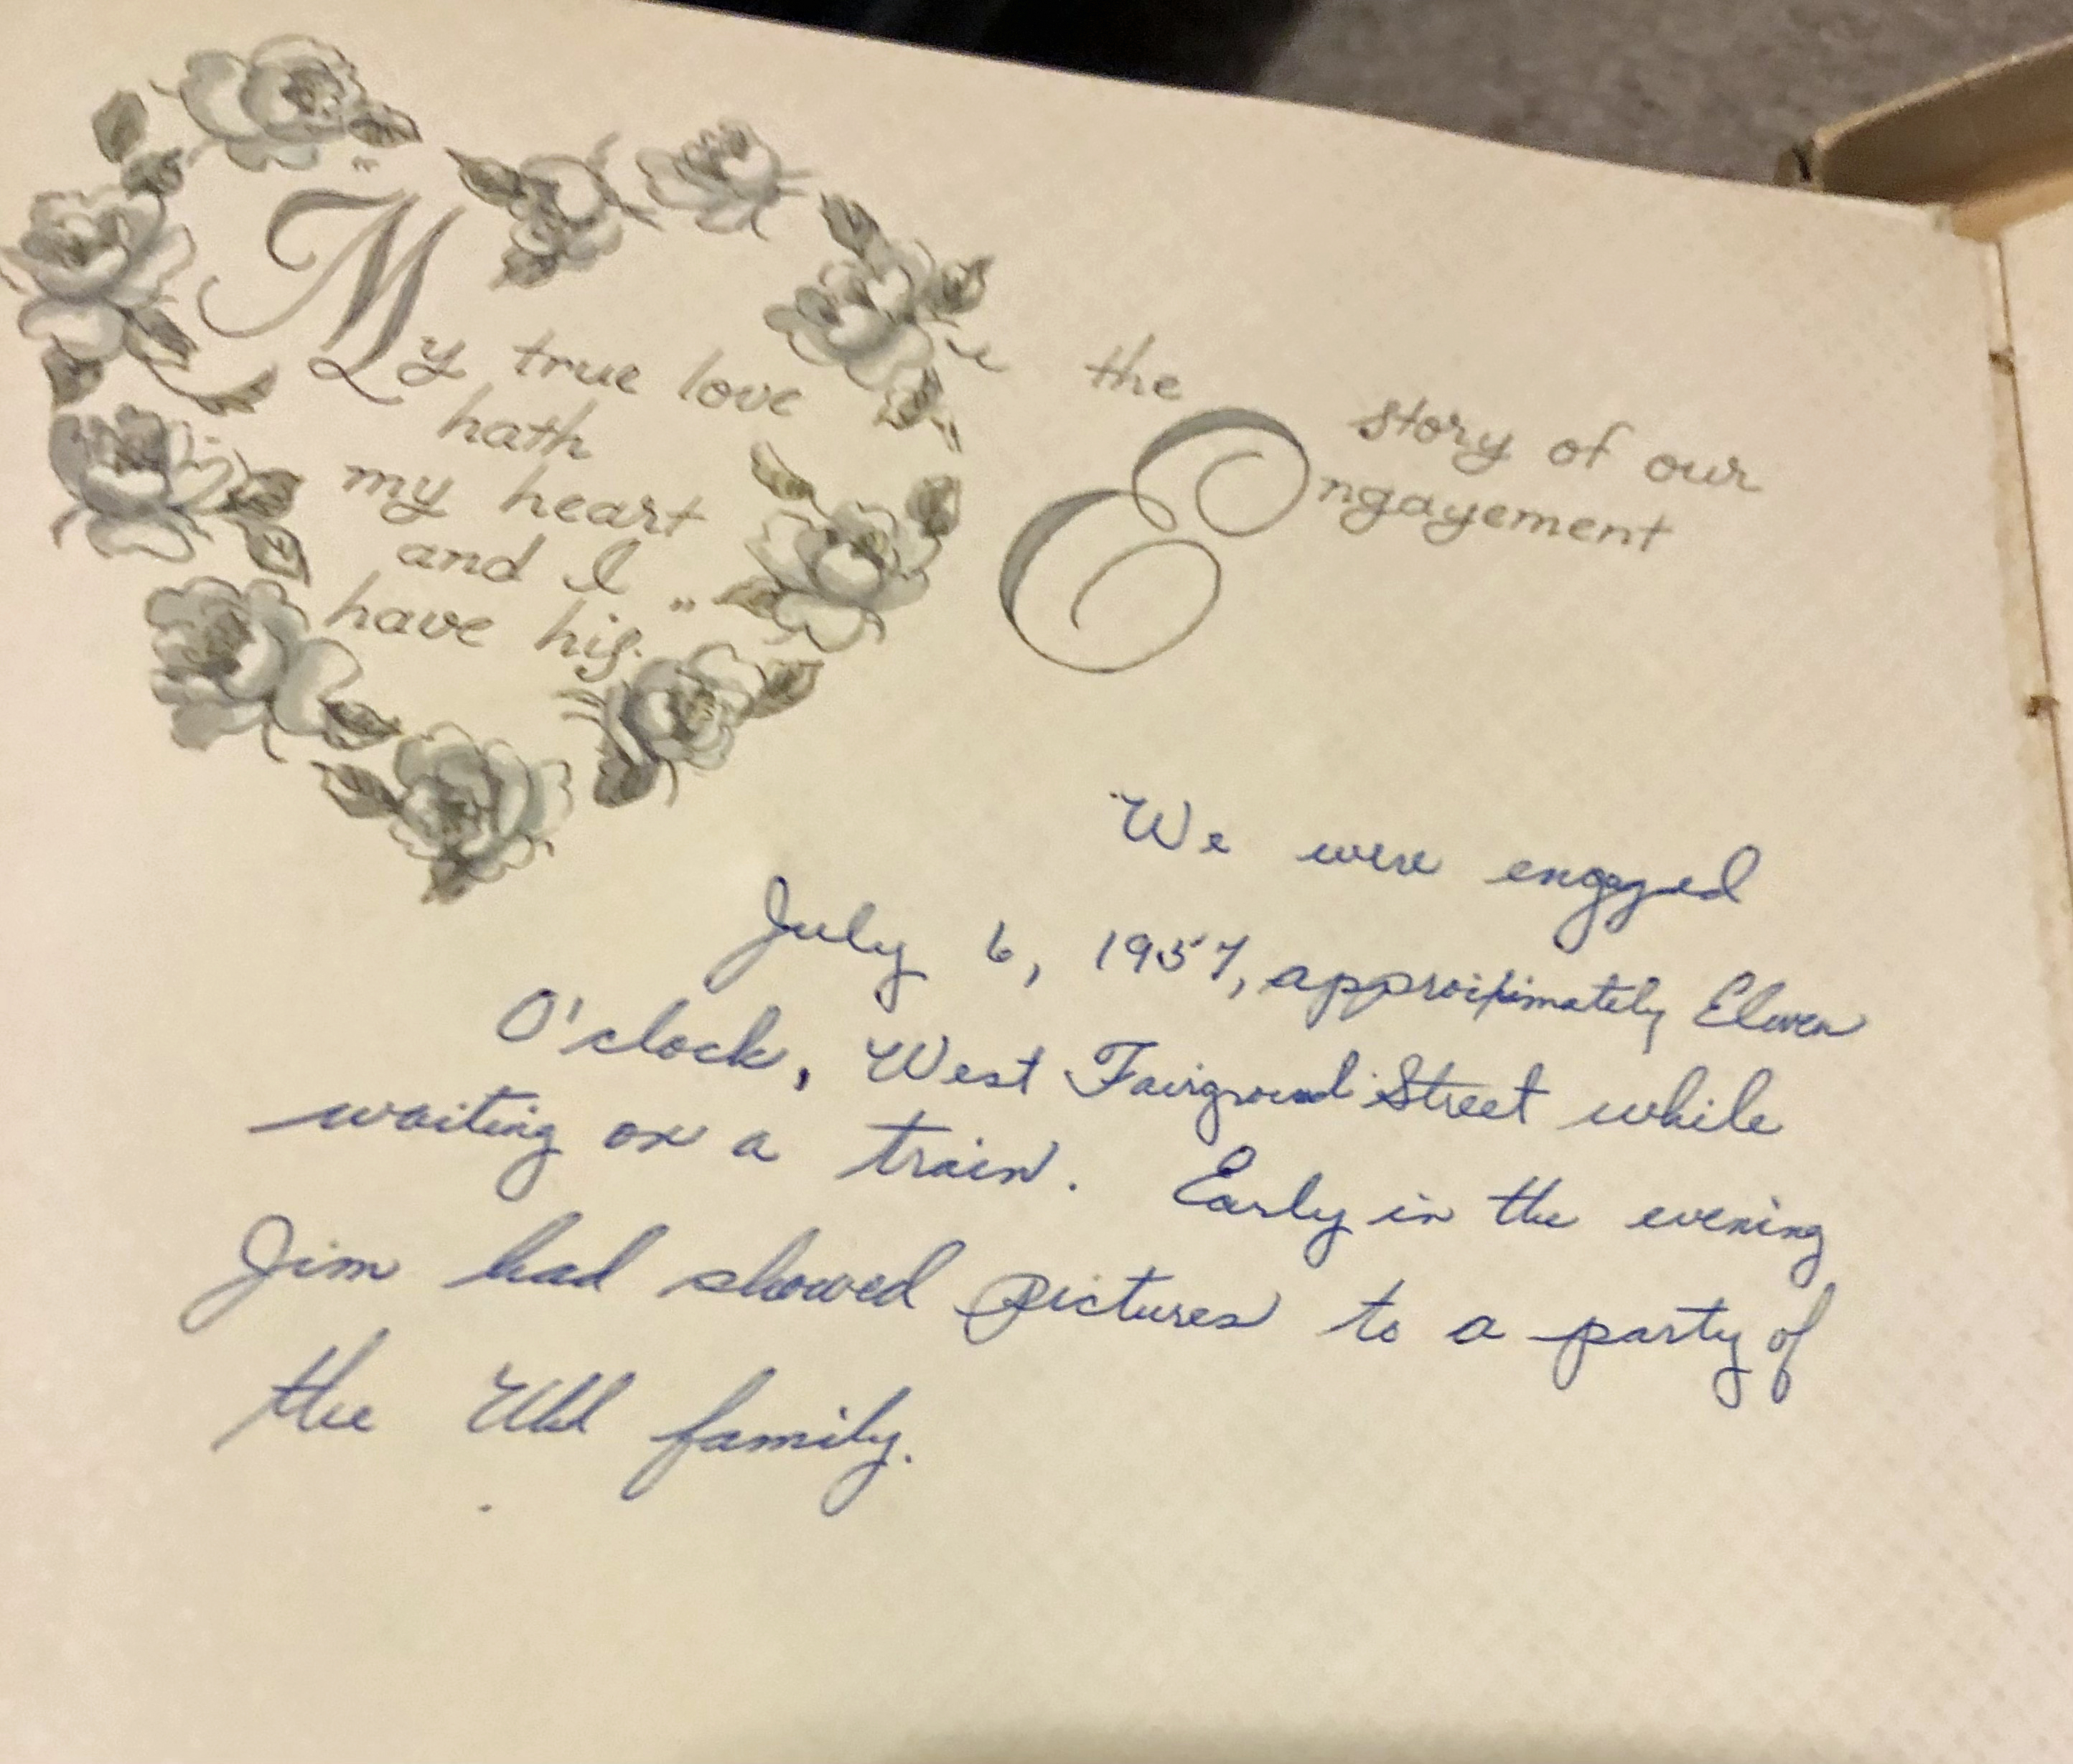 "My true love
hath
my heart
and I
have his."
the
story of our
Engagement
We were engaged
July 6, 1957, approximately Eleven
O'clock, West Fairground Street while
waiting on a train. Early in the evening
Jim had showed pictures to a party of
the family.